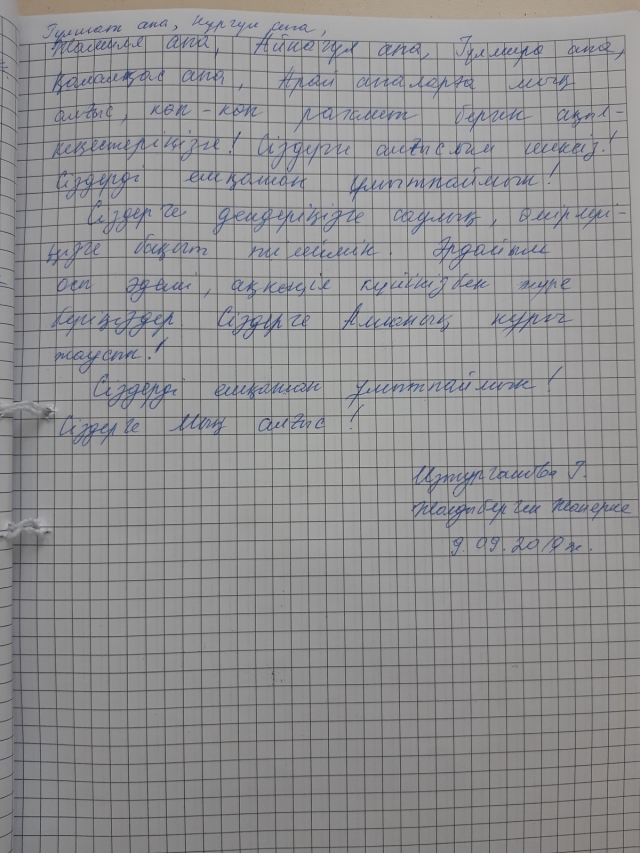 Гүлшат апа, Нұргүл апа,
Жәмиля апа, Айнагүл апа, Гүлмира апа,
Қамалқас апа, Арай апаларға мың
алғыс, көп-көп рахмет берген ақыл-
кеңестеріңізге! Сіздерге алғысым шексіз!
Сіздерді ешқашан ұмытпаймын!
Сіздерге дендеріңізге саулық, өмірлері-
ңізге бақыт тілеймін. Әрдайым
осы әдемі, ақкөңіл күйіңізбен жүре
беріңіздер Сіздерге Алланың нұры
жаусын!
Сіздерді ешқашан ұмытпаймын!
Сіздерге Мың алғыс!
Г.
Жолдыберген
9.09.2019ж.